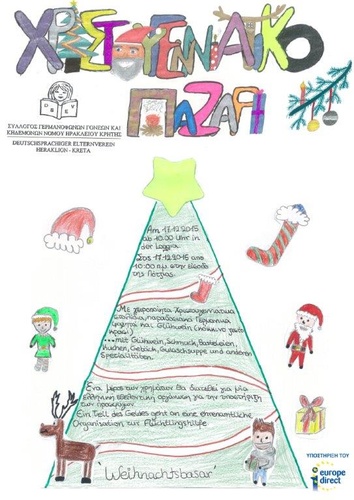 ΧΡΙΣΤΟΥΓΕΝΝΙΑΤΙΚΟ
ΠΑΖΑΡΙ
ΣΥΛΛΟΓΟΣ ΓΕΡΜΑΝΟΦΩΝΩΝ ΓΟΝΕΩΝ ΚΑΙ
ΚΗΔΕΜΟΝΩΝ ΝΟΜΟΥ ΗΡΑΚΛΕΙΟΥ ΚΡΗΤΗΣ
DEUTSCHSPRACHIGER ELTERNVEREIN
HERAKLION - KRETA
Am 17.12.2015
ab 10.00 Uhr in
der Loggia.
Στις 17.12.2015 από
10:00 πμ. στην είσοδο
της Λότζιας.
Με χειροποίητα Χριστουγεννιάτικα
παραδοσιακά Γερμανικά
και Glühwein
...mit Glühwein, Schmuck, Basteleien,
Kuchen, Gebäck, Gulaschsuppe und anderen
Spezialitäten.
Ένα μέρος των χρημάτων θα διατεθεί για μία
Ελληνική εθελοντική οργάνωση για την υποστήριξη
των προσφύγων.
Ein Teil des Geldes geht an eine ehrenamtliche
Organisation zur Flüchtlingshilfe
'Weihnachtsbasar'
ΥΠΟΣΤΗΡΙΞΗ ΤΟΥ
europe
direct